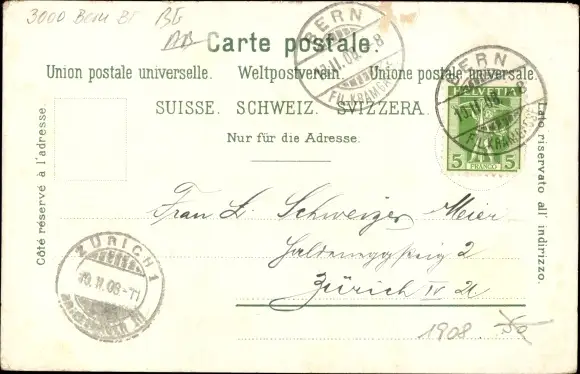 3000 Bern BE BE
Carte postale.
Union postale universelle. Weltpostverein. Unione postale universale.
SUISSE. SCHWEIZ. SVIZZERA.
Nur für die Adresse.
Côté réservé à l'adresse.
Lato riservato all' indirizzo.
BERN
FIL. KRAMGASSE
BERN
FIL. KRAMGASSE
HELVETIA
5 FRANCO 5
Frau L. Schweizer Meier
Haldeneggsteig 2
Zürich IV
ZÜRICH 1
BRIEFTRÄGER
1908